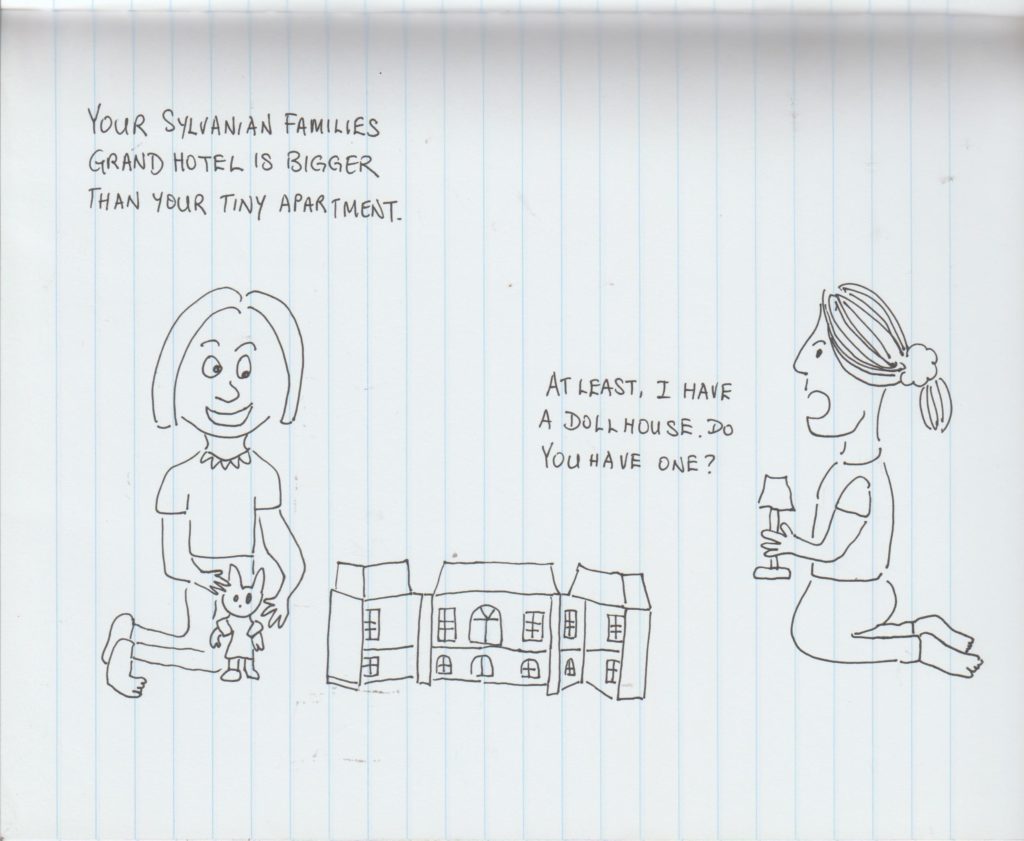 YOUR SYLVANIAN FAMILIES
GRAND HOTEL IS BIGGER
THAN YOUR TINY APARTMENT.
AT LEAST, I HAVE
A DOLLHOUSE. DO
YOU HAVE ONE?